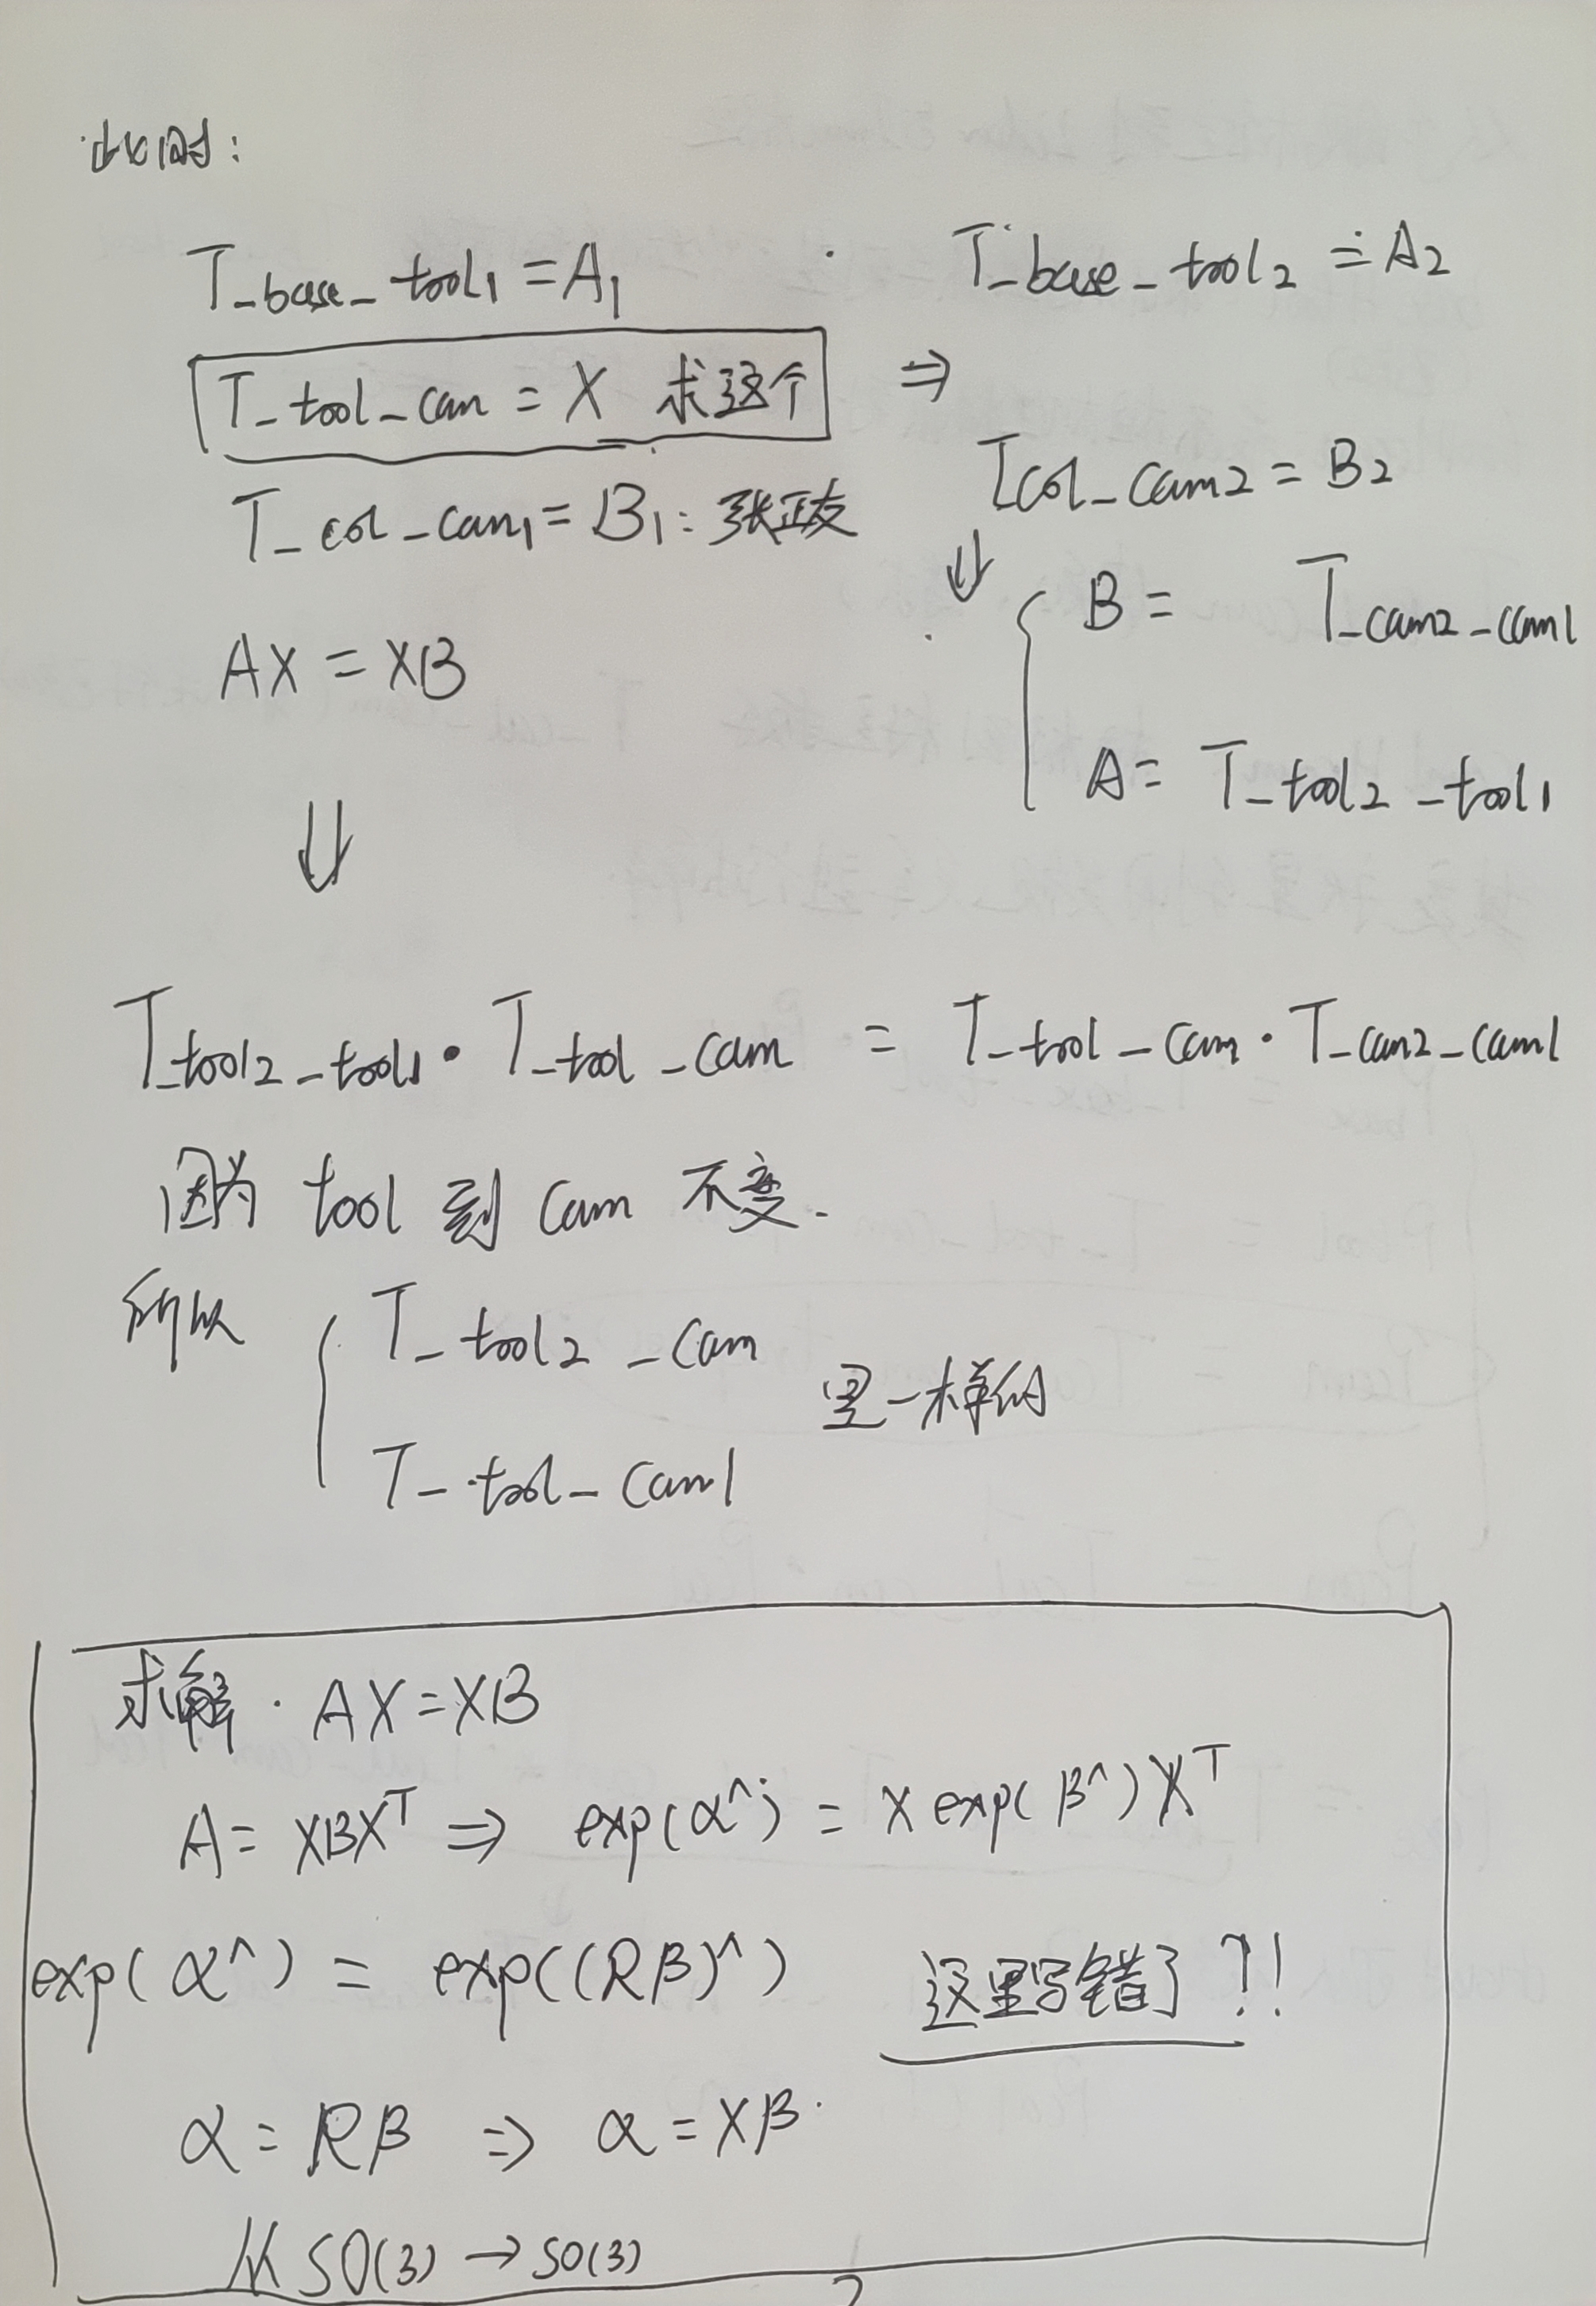 此时:
T_base_tool1 = A1
T_base_tool2 = A2
T_tool_cam = X 求这个 ⇒
T_col_cam1 = B1: 张正友
Tcol_cam2 = B2
⇓
B = T_cam2_cam1
AX = XB
A = T_tool2_tool1
⇓
T_tool2_tool1 · T_tool_cam = T_tool_cam · T_cam2_cam1
因为 tool 到 cam 不变.
所以 T_tool2_cam
是一样的
T_tool_cam1
求解. AX = XB
A = XBX^T ⇒ exp(α^) = X exp(β^) X^T
exp(α^) = exp((Rβ)^) 这里写错了?!!
α = Rβ ⇒ α = Xβ.
从 SO(3) → so(3)